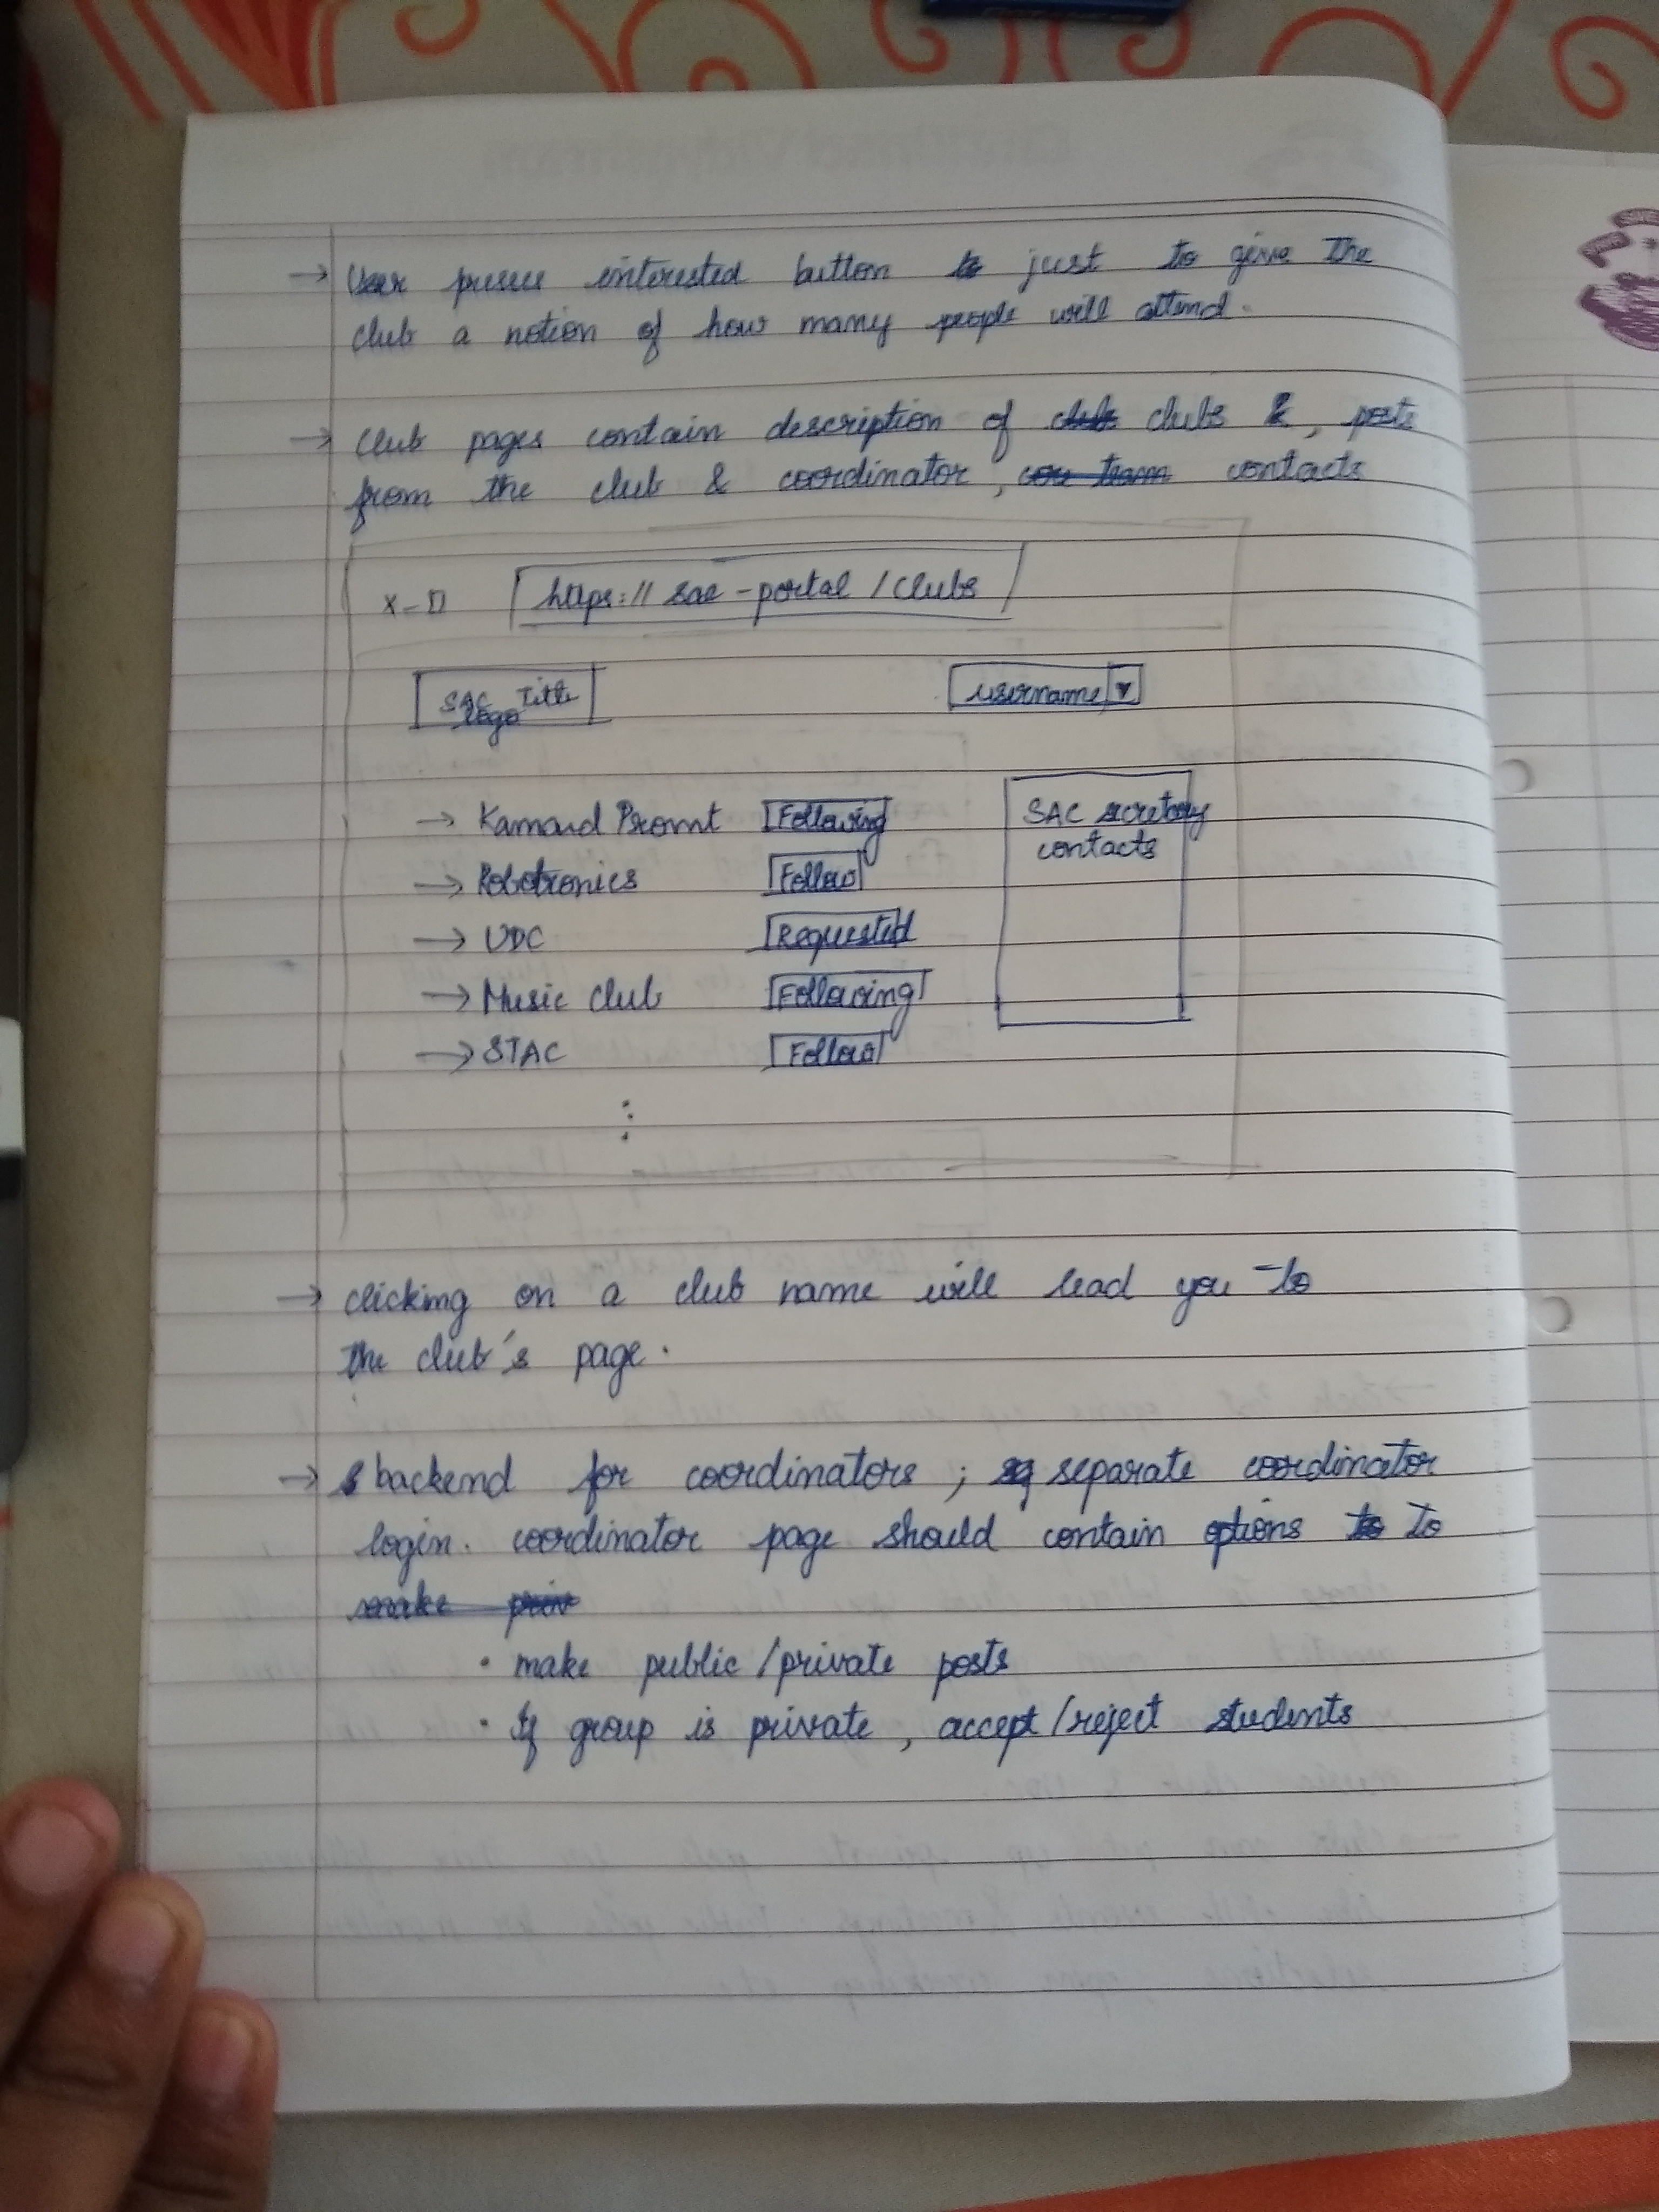 → User presses interested button to just to give the
club a notion of how many people will attend.
→ Club pages contain description of club clubs &, posts
from the club & coordinator, cou team contacts
x - □ https:// sac - portal / clubs
SAC Title
logo
username ▾
→ Kamand Promt Following
→ Robotronics Follow
→ UDC Requested
→ Music club Following
→ STAC Follow
⋮
SAC secretary
contacts
→ clicking on a club name will lead you to
the club's page.
→ backend for coordinators; separate coordinator
login. coordinator page should contain options to to
make priv
• make public/private posts
• If group is private, accept/reject students